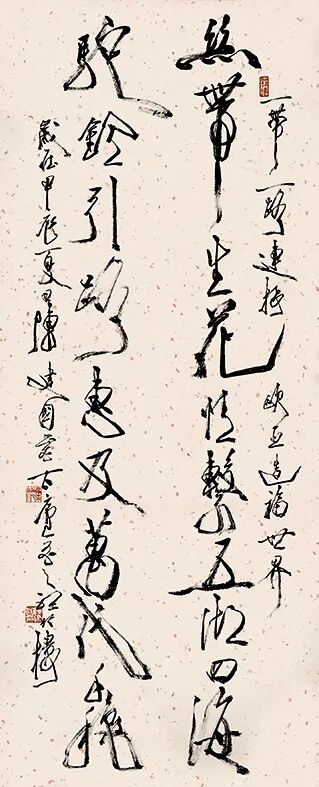 一帶一路連接 欧亞造福世界
絲帶生花情繫五湖四海
駝鈴引路惠及萬代千秋
歲在甲辰夏陳建國書古